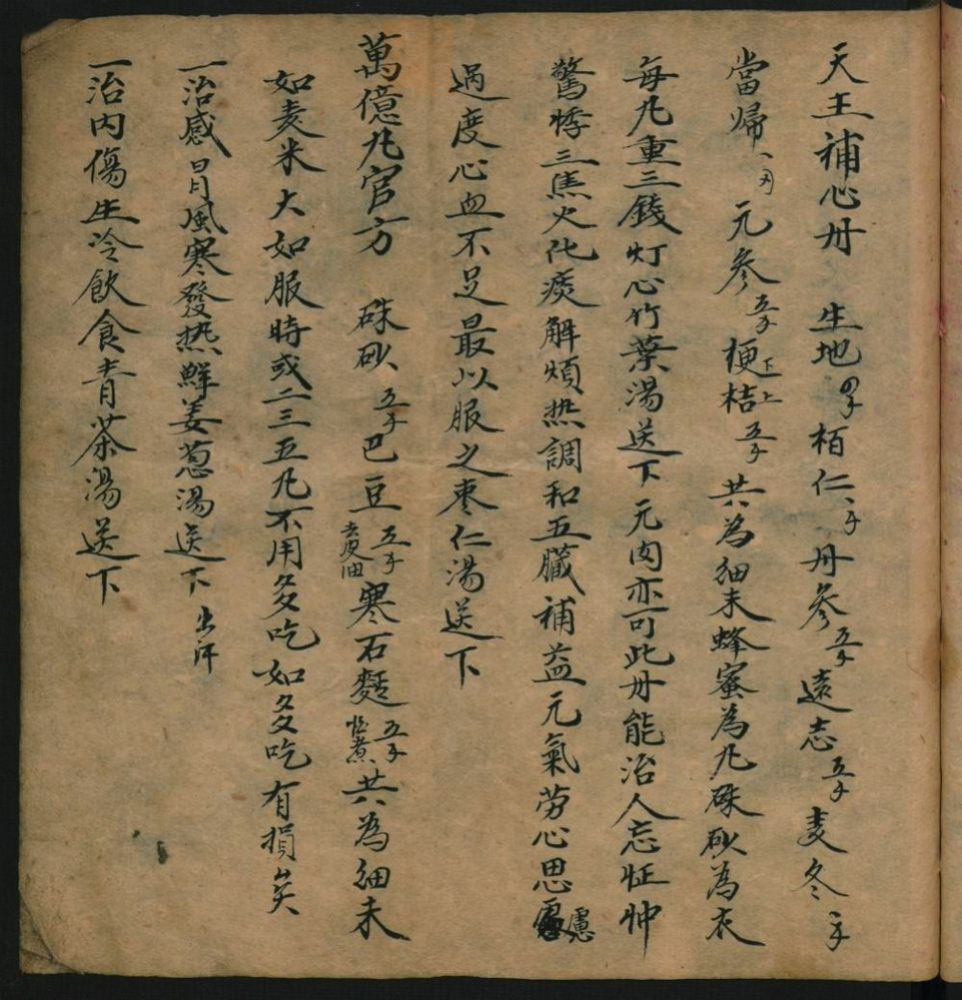 天王補心丹 生地四子栢仁一子丹參五子遠志五子麦冬二子
當歸一两元參五子梗桔下上五子共為細末蜂蜜為凡硃砂為衣
每凡重三錢灯心竹葉湯送下元肉亦可此丹能治人忘怔忡
驚悸三焦火化痰解煩热調和五臟補益元氣劳心思慮
過度心血不足最以服之枣仁湯送下
萬億凡官方 硃砂五子巴豆五子去皮油寒石麵五子煮共為細末
如麦米大如服時或二三五凡不用多吃如多吃有損矣
一治感冒風寒發热鮮姜葱湯送下出汗
一治內傷生冷飲食青茶湯送下